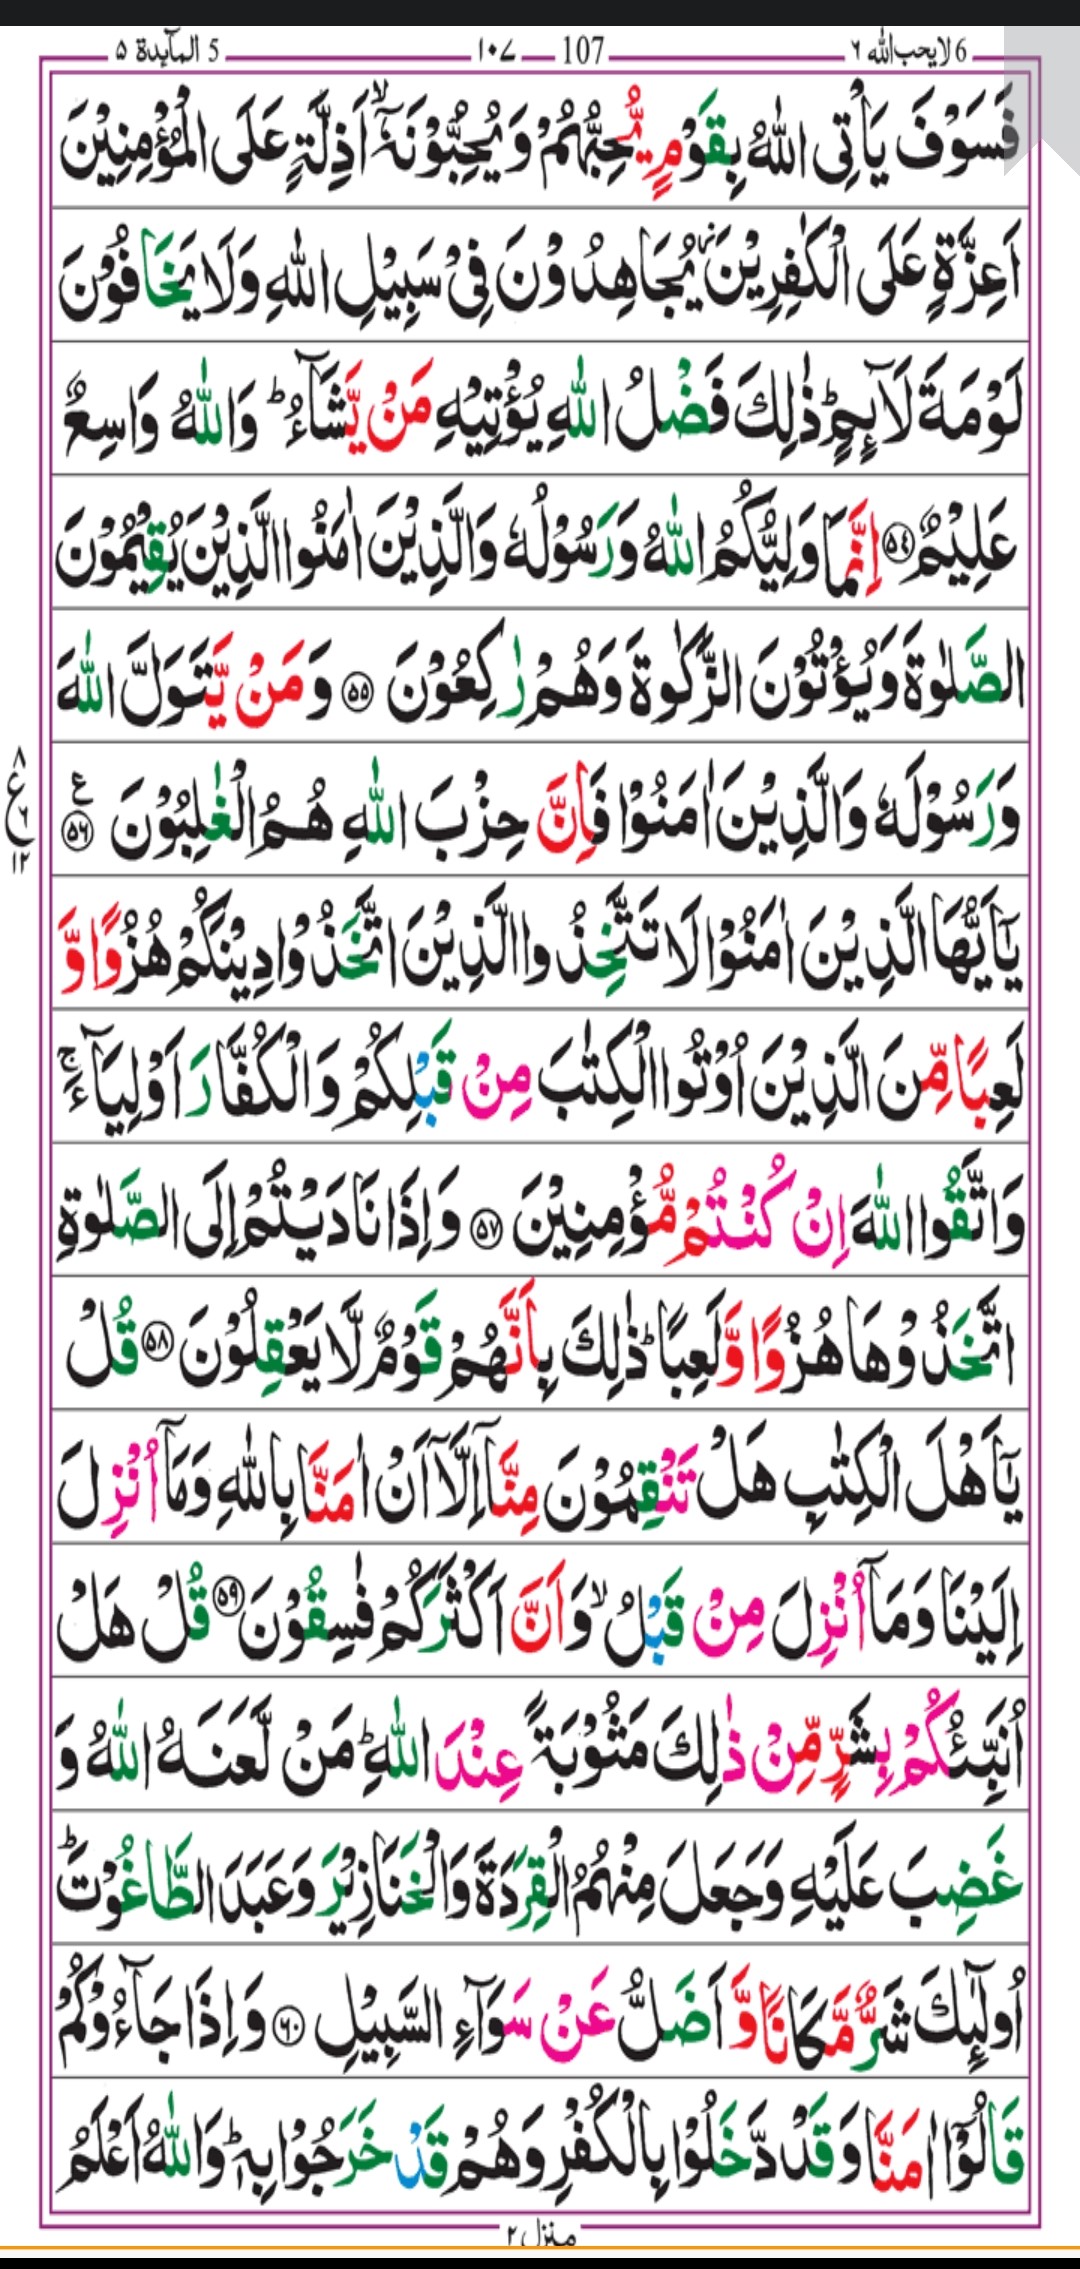 6 لایحب الله ٦ — 107 — ١٠٧ — 5 المآىِٕدة ٥
فَسَوْفَ یَاْتِی اللّٰهُ بِقَوْمٍ یُّحِبُّهُمْ وَیُحِبُّوْنَهٗۤ ۙ اَذِلَّةٍ عَلَی الْمُؤْمِنِیْنَ
اَعِزَّةٍ عَلَی الْكٰفِرِیْنَ ؗ یُجَاهِدُوْنَ فِیْ سَبِیْلِ اللّٰهِ وَلَا یَخَافُوْنَ
لَوْمَةَ لَآىِٕمٍ ؕ ذٰلِكَ فَضْلُ اللّٰهِ یُؤْتِیْهِ مَنْ یَّشَآءُ ؕ وَاللّٰهُ وَاسِعٌ
عَلِیْمٌ ٥٤ اِنَّمَا وَلِیُّكُمُ اللّٰهُ وَرَسُوْلُهٗ وَالَّذِیْنَ اٰمَنُوا الَّذِیْنَ یُقِیْمُوْنَ
الصَّلٰوةَ وَیُؤْتُوْنَ الزَّكٰوةَ وَهُمْ رٰكِعُوْنَ ٥٥ وَمَنْ یَّتَوَلَّ اللّٰهَ
وَرَسُوْلَهٗ وَالَّذِیْنَ اٰمَنُوْا فَاِنَّ حِزْبَ اللّٰهِ هُمُ الْغٰلِبُوْنَ ٥٦ ع
٨ ع ٦ ١٢
یٰۤاَیُّهَا الَّذِیْنَ اٰمَنُوْا لَا تَتَّخِذُوا الَّذِیْنَ اتَّخَذُوْا دِیْنَكُمْ هُزُوًا وَّ
لَعِبًا مِّنَ الَّذِیْنَ اُوْتُوا الْكِتٰبَ مِنْ قَبْلِكُمْ وَالْكُفَّارَ اَوْلِیَآءَ ۚ
وَاتَّقُوا اللّٰهَ اِنْ كُنْتُمْ مُّؤْمِنِیْنَ ٥٧ وَاِذَا نَادَیْتُمْ اِلَی الصَّلٰوةِ
اتَّخَذُوْهَا هُزُوًا وَّلَعِبًا ؕ ذٰلِكَ بِاَنَّهُمْ قَوْمٌ لَّا یَعْقِلُوْنَ ٥٨ قُلْ
یٰۤاَهْلَ الْكِتٰبِ هَلْ تَنْقِمُوْنَ مِنَّاۤ اِلَّاۤ اَنْ اٰمَنَّا بِاللّٰهِ وَمَاۤ اُنْزِلَ
اِلَیْنَا وَمَاۤ اُنْزِلَ مِنْ قَبْلُ ۙ وَاَنَّ اَكْثَرَكُمْ فٰسِقُوْنَ ٥٩ قُلْ هَلْ
اُنَبِّئُكُمْ بِشَرٍّ مِّنْ ذٰلِكَ مَثُوْبَةً عِنْدَ اللّٰهِ ؕ مَنْ لَّعَنَهُ اللّٰهُ وَ
غَضِبَ عَلَیْهِ وَجَعَلَ مِنْهُمُ الْقِرَدَةَ وَالْخَنَازِیْرَ وَعَبَدَ الطَّاغُوْتَ ؕ
اُولٰٓىِٕكَ شَرٌّ مَّكَانًا وَّاَضَلُّ عَنْ سَوَآءِ السَّبِیْلِ ٦٠ وَاِذَا جَآءُوْكُمْ
قَالُوْۤا اٰمَنَّا وَقَدْ دَّخَلُوْا بِالْكُفْرِ وَهُمْ قَدْ خَرَجُوْا بِهٖ ؕ وَاللّٰهُ اَعْلَمُ
منزل ٢